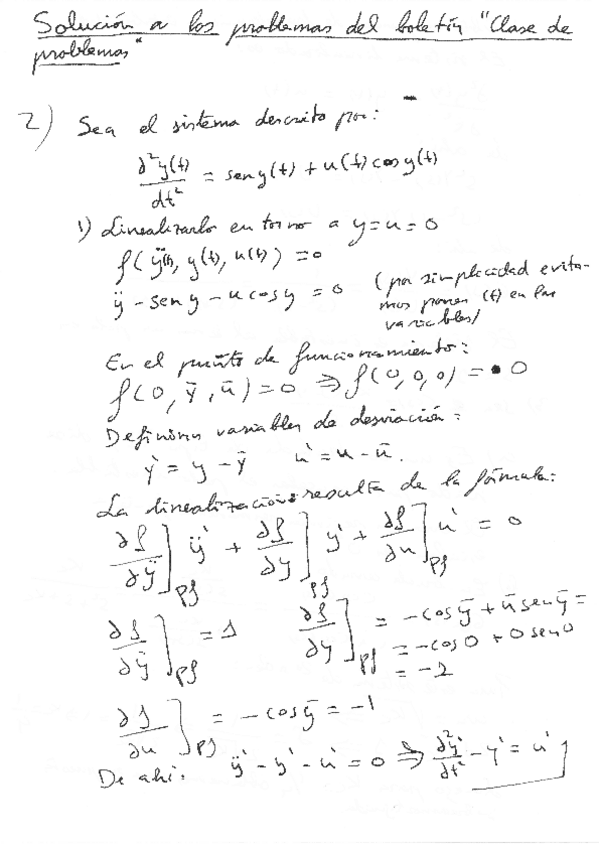 Solución a los problemas del boletín "Clase de
problemas"
2) Sea el sistema descrito por:
∂²y(t)/dt² = sen y(t) + u(t) cos y(t)
1) Linealizarlo en torno a y = u = 0
f(ÿ(t), y(t), u(t)) = 0
ÿ - sen y - u cos y = 0 (por simplicidad evita-
mos poner (t) en las
variables)
En el punto de funcionamiento:
f(0, ȳ, ū) = 0 ⇒ f(0, 0, 0) = 0
Definimos variables de desviación:
y' = y - ȳ   u' = u - ū.
La linealización resulta de la fórmula:
∂f/∂ÿ]pf ÿ' + ∂f/∂y]pf y' + ∂f/∂u]pf u' = 0
∂f/∂ÿ]pf = 1   ∂f/∂y]pf = -cos ȳ + ū sen ȳ =
= -cos 0 + 0 sen 0
= -1
∂f/∂u]pf = -cos ȳ = -1
De ahí: ÿ' - y' - u' = 0 ⇒ ∂²y'/∂t² - y' = u'